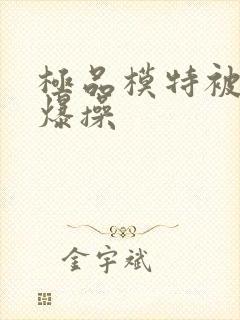 極品模特被
爆操
金宇斌